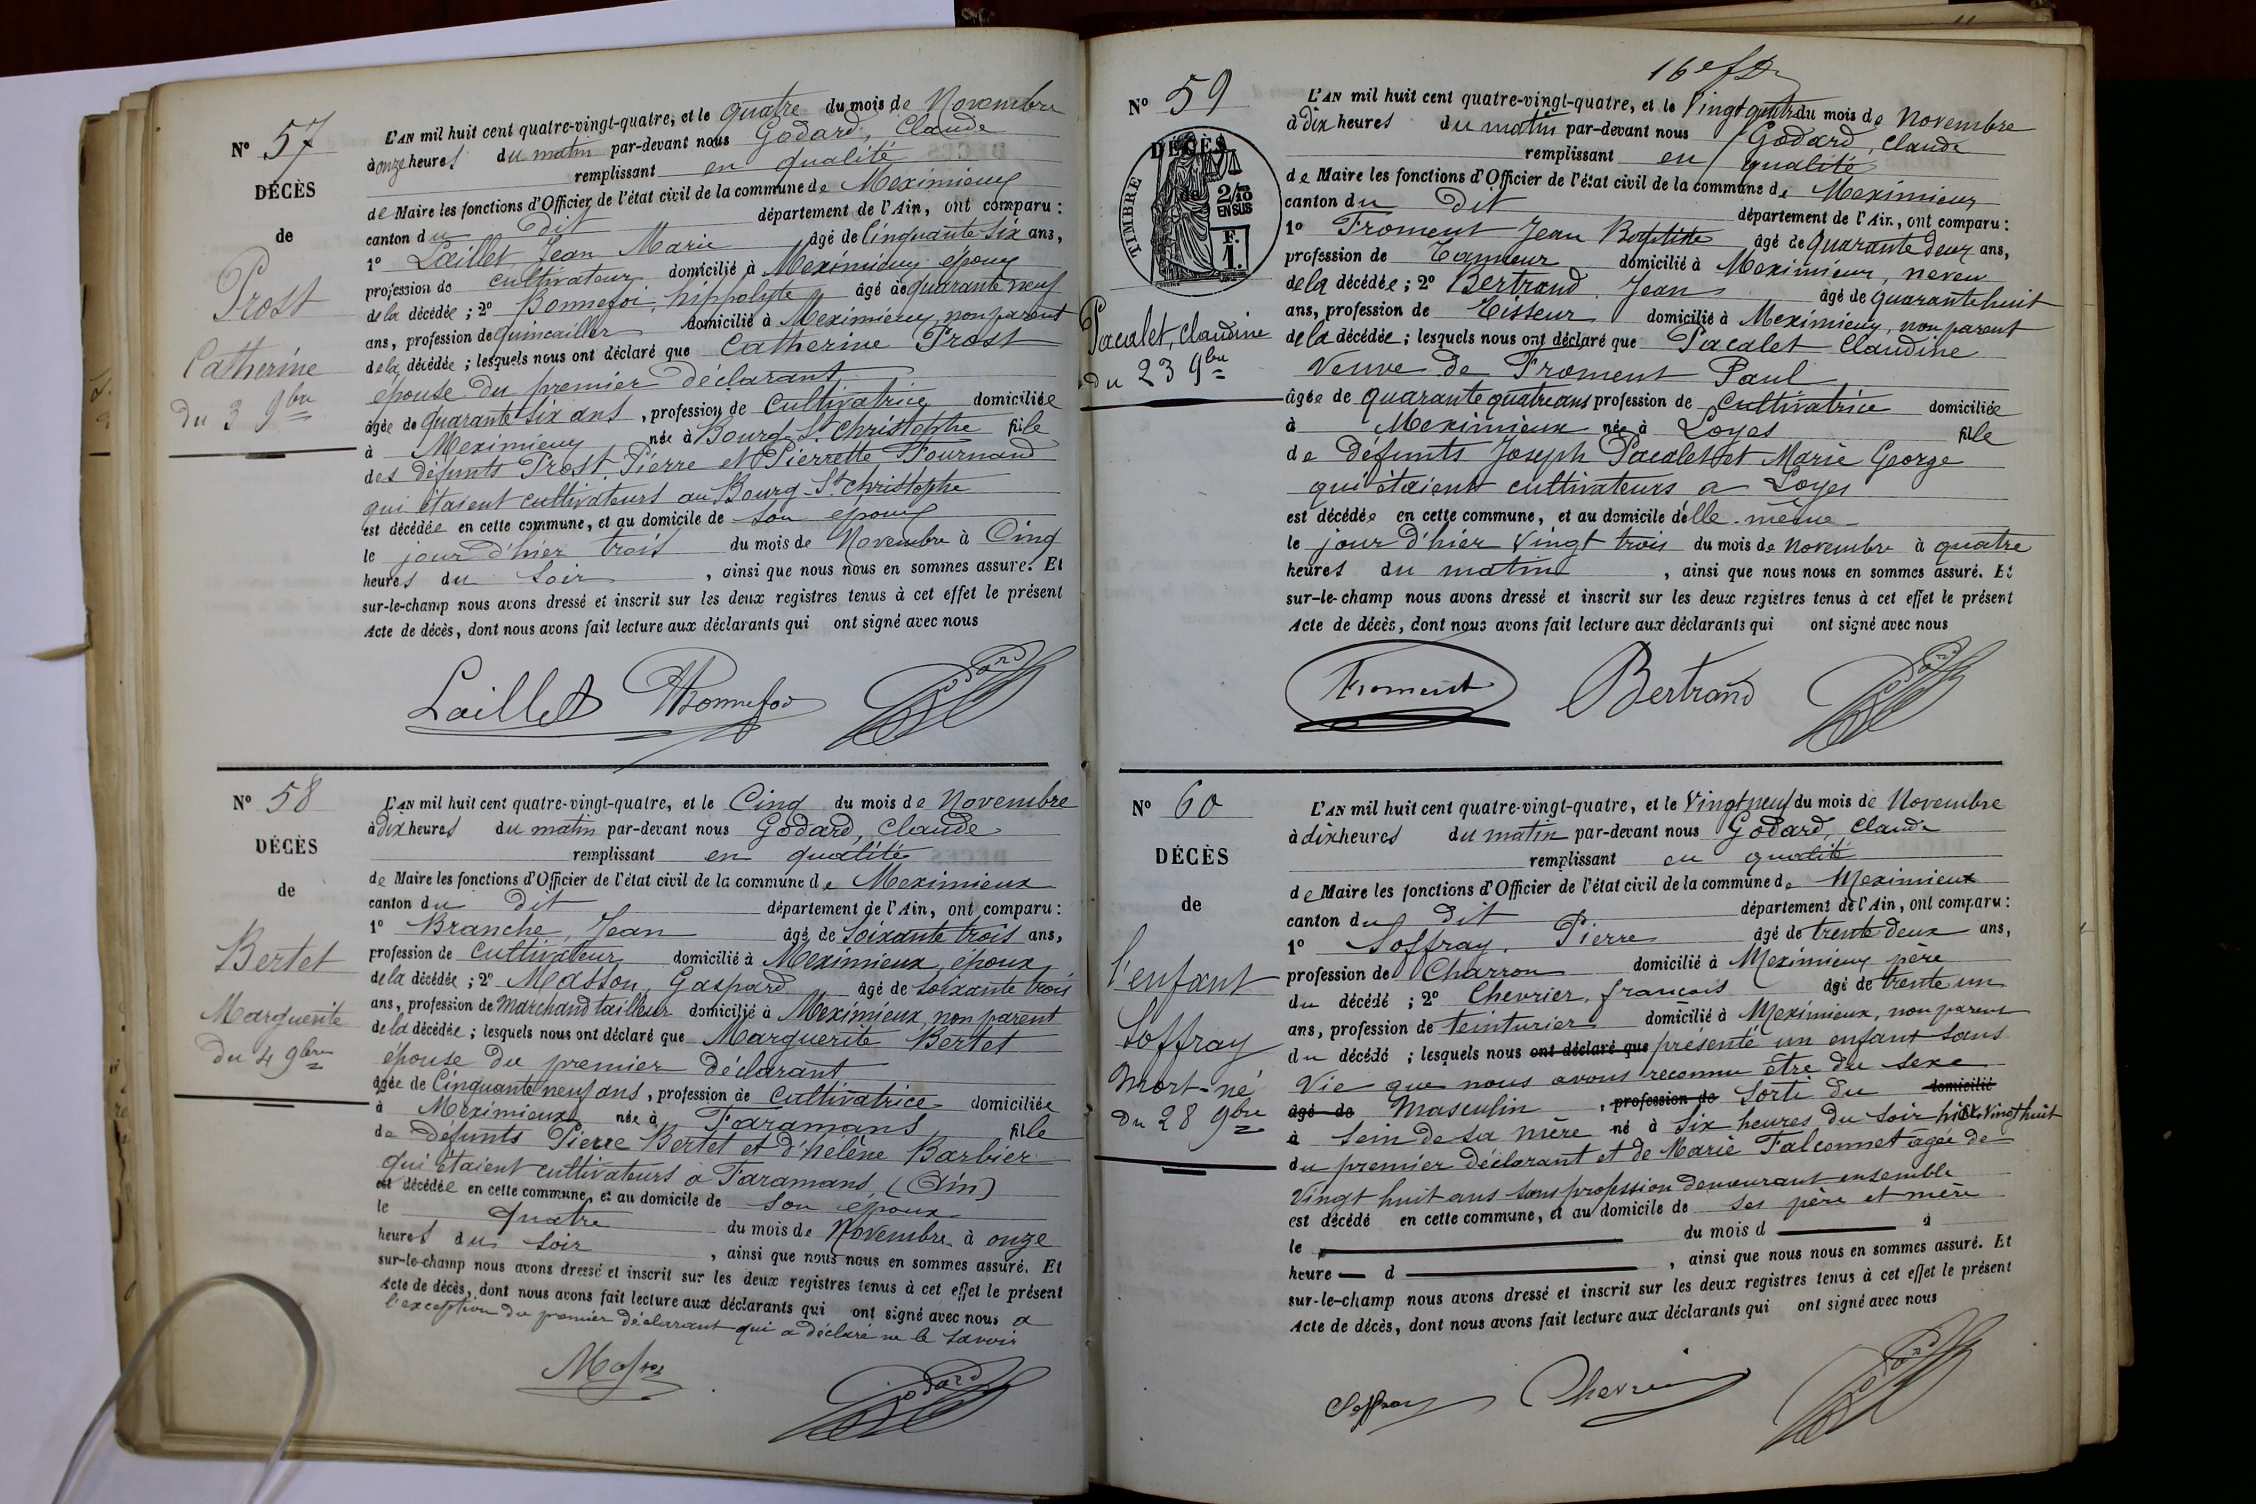 N° 57
DÉCÈS
de
Prost
Catherine
du 3 9bre
L'AN mil huit cent quatre-vingt-quatre, et le quatre du mois de Novembre
à onze heures du matin par-devant nous Godard, Claude
remplissant en qualité
de Maire les fonctions d'Officier de l'état civil de la commune de Meximieux
canton du dit département de l'Ain, ont comparu :
1° Laillet Jean Marie âgé de Cinquante six ans,
profession de cultivateur domicilié à Meximieux époux
de la décédée ; 2° Bonnefoi, hippolyte âgé de quarante neuf
ans, profession de quincailler domicilié à Meximieux, non parent
de la décédée ; lesquels nous ont déclaré que Catherine Prost
épouse du premier déclarant
âgée de quarante six ans , profession de Cultivatrice domiciliée
à Meximieux née à Bourg St Christophe fille
des défunts Prost Pierre et Pierrette Fournand
qui étaient cultivateurs au Bourg St Christophe
est décédée en cette commune, et au domicile de son époux
le jour d'hier trois du mois de Novembre à Cinq
heures du soir , ainsi que nous nous en sommes assuré. Et
sur-le-champ nous avons dressé et inscrit sur les deux registres tenus à cet effet le présent
Acte de décès, dont nous avons fait lecture aux déclarants qui ont signé avec nous
Laillet HBonnefoi Godard
N° 58
DÉCÈS
de
Bertet
Marguerite
du 4 9bre
L'AN mil huit cent quatre-vingt-quatre, et le Cinq du mois de Novembre
à dix heures du matin par-devant nous Godard, Claude
remplissant en qualité
de Maire les fonctions d'Officier de l'état civil de la commune de Meximieux
canton du dit département de l'Ain, ont comparu :
1° Branche, Jean âgé de soixante trois ans,
profession de cultivateur domicilié à Meximieux, époux
de la décédée ; 2° Masson, Gaspard âgé de soixante trois
ans, profession de Marchand tailleur domicilié à Meximieux, non parent
de la décédée ; lesquels nous ont déclaré que Marguerite Bertet
épouse du premier déclarant
âgée de Cinquante neuf ans , profession de cultivatrice domiciliée
à Meximieux née à Faramans fille
de défunts Pierre Bertet et d'hélène Barbier
qui étaient cultivateurs à Faramans (Ain)
est décédée en cette commune, et au domicile de son époux
le quatre du mois de Novembre à onze
heures du soir , ainsi que nous nous en sommes assuré. Et
sur-le-champ nous avons dressé et inscrit sur les deux registres tenus à cet effet le présent
Acte de décès, dont nous avons fait lecture aux déclarants qui ont signé avec nous a
l'exception du premier déclarant qui a déclaré ne le savoir
Masson Godard
16e f
N° 59
DÉCÈS
TIMBRE
2/10
EN SUS
F.
1.
Pacalet, Claudine
du 23 9bre
L'AN mil huit cent quatre-vingt-quatre, et le Vingt quatre du mois de Novembre
à dix heures du matin par-devant nous Godard, Claude
remplissant en qualité
de Maire les fonctions d'Officier de l'état civil de la commune de Meximieux
canton du dit département de l'Ain, ont comparu :
1° Froment Jean Baptiste âgé de quarante deux ans,
profession de Tanneur domicilié à Meximieux, neveu
de la décédée ; 2° Bertrand, Jean âgé de quarante huit
ans, profession de Tisseur domicilié à Meximieux, non parent
de la décédée ; lesquels nous ont déclaré que Pacalet Claudine
Veuve de Froment Paul
âgée de quarante quatre ans profession de Cultivatrice domiciliée
à Meximieux née à Loyes fille
de défunts Joseph Pacalet et Marie George
qui étaient cultivateurs a Loyes
est décédée en cette commune, et au domicile d'elle-même
le jour d'hier Vingt trois du mois de Novembre à quatre
heures du matin , ainsi que nous nous en sommes assuré. Et
sur-le-champ nous avons dressé et inscrit sur les deux registres tenus à cet effet le présent
Acte de décès, dont nous avons fait lecture aux déclarants qui ont signé avec nous
Froment Bertrand Godard
N° 60
DÉCÈS
de
l'enfant
Soffray
Mort-né
du 28 9bre
L'AN mil huit cent quatre-vingt-quatre, et le Vingt neuf du mois de Novembre
à dix heures du matin par-devant nous Godard, Claude
remplissant en qualité
de Maire les fonctions d'Officier de l'état civil de la commune de Meximieux
canton du dit département de l'Ain, ont comparu :
1° Soffray, Pierre âgé de trente deux ans,
profession de Charron domicilié à Meximieux père
du décédé ; 2° Chevrier, françois âgé de trente un
ans, profession de teinturier domicilié à Meximieux, non parent
du décédé ; lesquels nous ont déclaré que présenté un enfant sans
Vie que nous avons reconnu être du sexe
âgé de Masculin , profession de Sorti du domicilié
à sein de sa mère né à six heures du soir hier Vingt huit
du premier déclarant et de Marie Falconnet agée de
Vingt huit ans sans profession demeurant ensemble
est décédé en cette commune, et au domicile de ses père et mère
le du mois d à
heure d , ainsi que nous nous en sommes assuré. Et
sur-le-champ nous avons dressé et inscrit sur les deux registres tenus à cet effet le présent
Acte de décès, dont nous avons fait lecture aux déclarants qui ont signé avec nous
Soffray Chevrier Godard